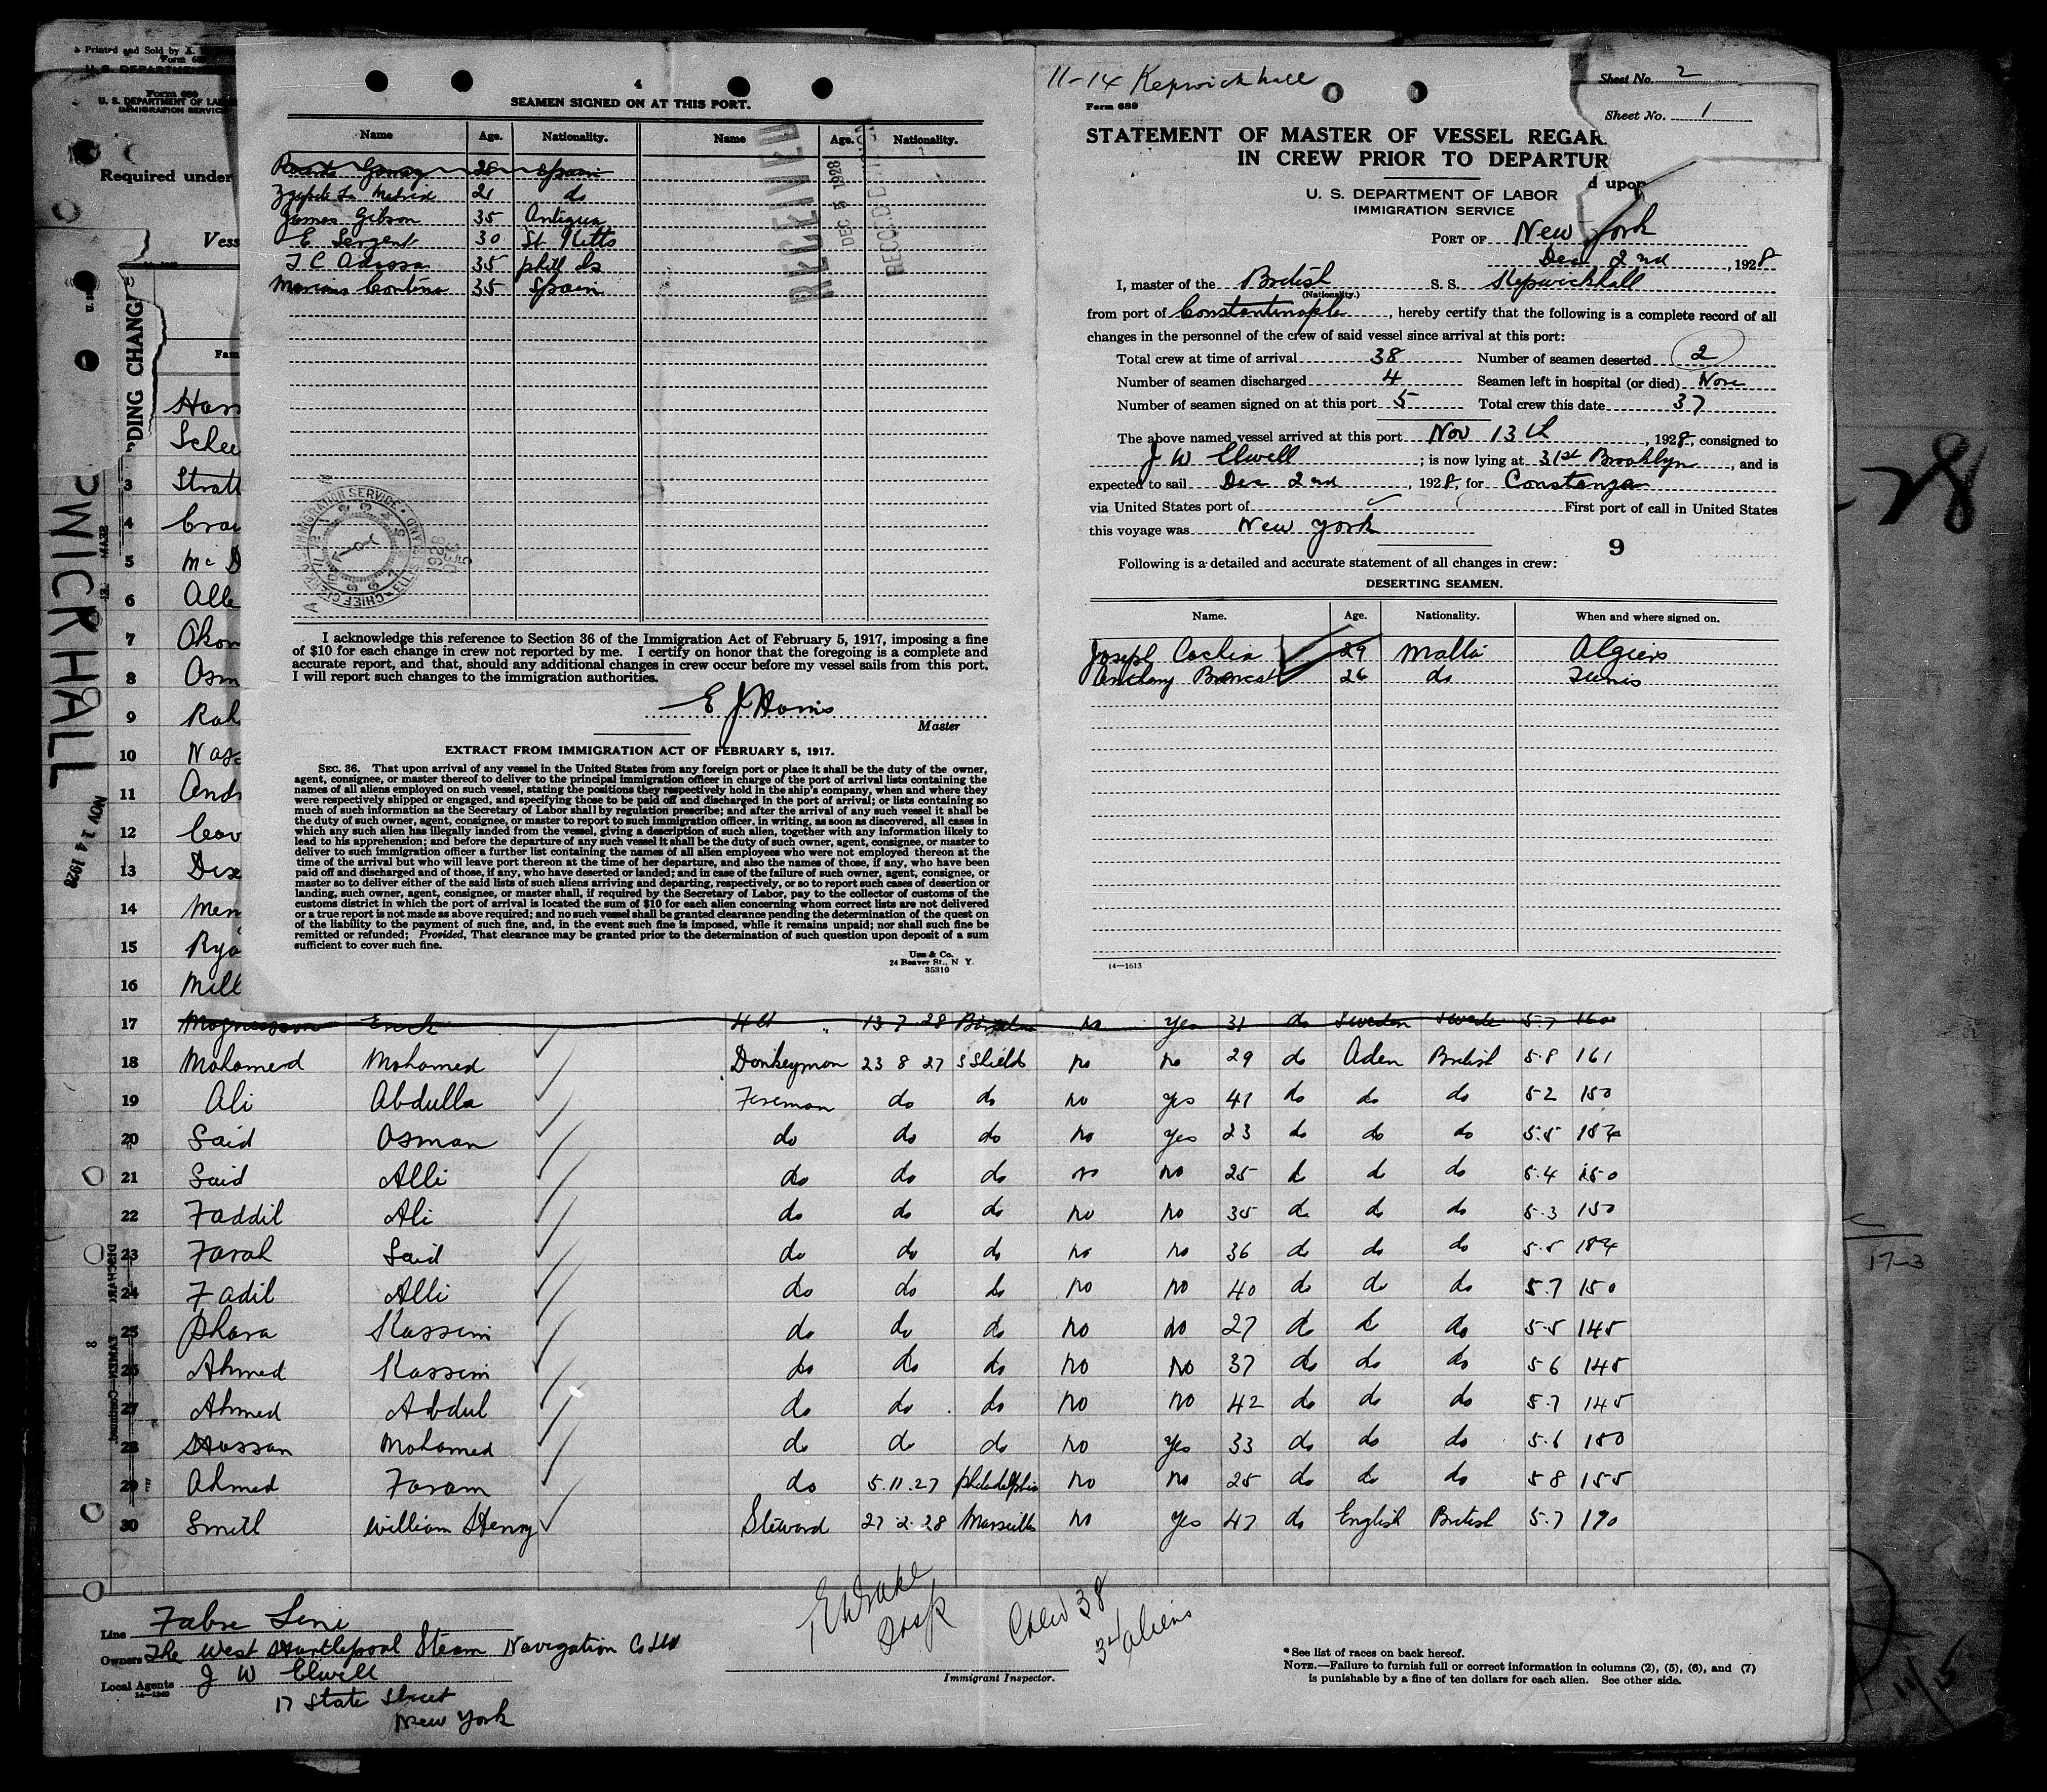 Printed and Sold by A.
Form 689
U. S. DEPARTMENT OF LAB
IMMIGRATION SERVICE
Required under
Vess
DING CHANG
Fam
PWICKHALL
NOV 14 1928
4
SEAMEN SIGNED ON AT THIS PORT.
Name Age. Nationality. Name Age. Nationality.
28 Spain
21 do
James Gibson 35 Antigua
E Sergent 30 St Kitts
J C 35 phill Is
35 Spain
RECEIVED
DEC 5 1928
I acknowledge this reference to Section 36 of the Immigration Act of February 5, 1917, imposing a fine
of $10 for each change in crew not reported by me. I certify on honor that the foregoing is a complete and
accurate report, and that, should any additional changes in crew occur before my vessel sails from this port,
I will report such changes to the immigration authorities.
E J Harris
Master
EXTRACT FROM IMMIGRATION ACT OF FEBRUARY 5, 1917.
SEC. 36. That upon arrival of any vessel in the United States from any foreign port or place it shall be the duty of the owner,
agent, consignee, or master thereof to deliver to the principal immigration officer in charge of the port of arrival lists containing the
names of all aliens employed on such vessel, stating the positions they respectively hold in the ship's company, when and where they
were respectively shipped or engaged, and specifying those to be paid off and discharged in the port of arrival; or lists containing so
much of such information as the Secretary of Labor shall by regulation prescribe; and after the arrival of any such vessel it shall be
the duty of such owner, agent, consignee, or master to report to such immigration officer, in writing, as soon as discovered, all cases in
which any such alien has illegally landed from the vessel, giving a description of such alien, together with any information likely to
lead to his apprehension; and before the departure of any such vessel it shall be the duty of such owner, agent, consignee, or master to
deliver to such immigration officer a further list containing the names of all alien employees who were not employed thereon at the
time of the arrival but who will leave port thereon at the time of her departure, and also the names of those, if any, who have been
paid off and discharged and of those, if any, who have deserted or landed; and in case of the failure of such owner, agent, consignee, or
master so to deliver either of the said lists of such aliens arriving and departing, respectively, or so to report such cases of desertion or
landing, such owner, agent, consignee, or master shall, if required by the Secretary of Labor, pay to the collector of customs of the
customs district in which the port of arrival is located the sum of $10 for each alien concerning whom correct lists are not delivered
or a true report is not made as above required; and no such vessel shall be granted clearance pending the determination of the quest on
of the liability to the payment of such fine, and, in the event such fine is imposed, while it remains unpaid; nor shall such fine be
remitted or refunded; Provided, That clearance may be granted prior to the determination of such question upon deposit of a sum
sufficient to cover such fine.
24 Beaver St., N. Y.
35310
11-14 Kepwickhall
Form 689
Sheet No. 2
Sheet No. 1
STATEMENT OF MASTER OF VESSEL REGAR
IN CREW PRIOR TO DEPARTUR
d upon
U. S. DEPARTMENT OF LABOR
IMMIGRATION SERVICE
PORT OF New York
Dec 2nd, 1928
I, master of the British S. S. Kepwickhall
(Nationality.)
from port of Constantinople, hereby certify that the following is a complete record of all
changes in the personnel of the crew of said vessel since arrival at this port:
Total crew at time of arrival 38 Number of seamen deserted 2
Number of seamen discharged 4 Seamen left in hospital (or died) None
Number of seamen signed on at this port 5 Total crew this date 37
The above named vessel arrived at this port Nov 13th, 1928, consigned to
J W Elwell; is now lying at 31st Brooklyn, and is
expected to sail Dec 2nd, 1928, for Constanza
via United States port of First port of call in United States
this voyage was New York
9
Following is a detailed and accurate statement of all changes in crew:
DESERTING SEAMEN.
Name. Age. Nationality. When and where signed on.
Joseph Cachia 29 Malta Algiers
Anthony 26 do Tunis
14—1613
28
3 Stratt
4
5 Mc D
6 Alle
7 Okon
8 Osm
9 Rah
10 Nass
11 Andr
12
13
14 Men
15 Rya
16 Mill
17 Magnusson Erick 13 7 28 no yes 31 do Sweden Swede 5.7 160
18 Mohamerd Mohamed Donkeyman 23 8 27 S Shields no no 29 do Aden British 5.8 161
19 Ali Abdulla Fireman do do no yes 41 do do do 5 2 150
20 Said Osman do do do no yes 23 do do do 5.5 154
21 Said Alli do do do no no 25 do do do 5.4 150
22 Faddil Ali do do do no no 35 do do do 5.3 150
23 Farah Said do do do no no 36 do do do 5.5 154
24 Fadil Alli do do do no no 40 do do do 5.7 150
25 Phara Kassim do do do no no 27 do do do 5.5 145
26 Ahmed Kassim do do do no no 37 do do do 5 6 145
27 Ahmed Abdul do do do no no 42 do do do 5.7 145
28 Hassan Mohamed do do do no yes 33 do do do 5.6 150
29 Ahmed Faram do 5.11.27 philadelphia no no 25 do do do 5 8 155
30 Smith William Henry Steward 27.2.28 Marseilles no yes 47 do English British 5.7 190
17-3
Line Fabre Line
Owners The West Hartlepool Steam Navigation Co Ltd
Local Agents J W Elwell
14—1240
17 State Street
New York
Crew 38
34 aliens
Immigrant Inspector.
* See list of races on back hereof.
NOTE.—Failure to furnish full or correct information in columns (2), (5), (6), and (7)
is punishable by a fine of ten dollars for each alien. See other side.